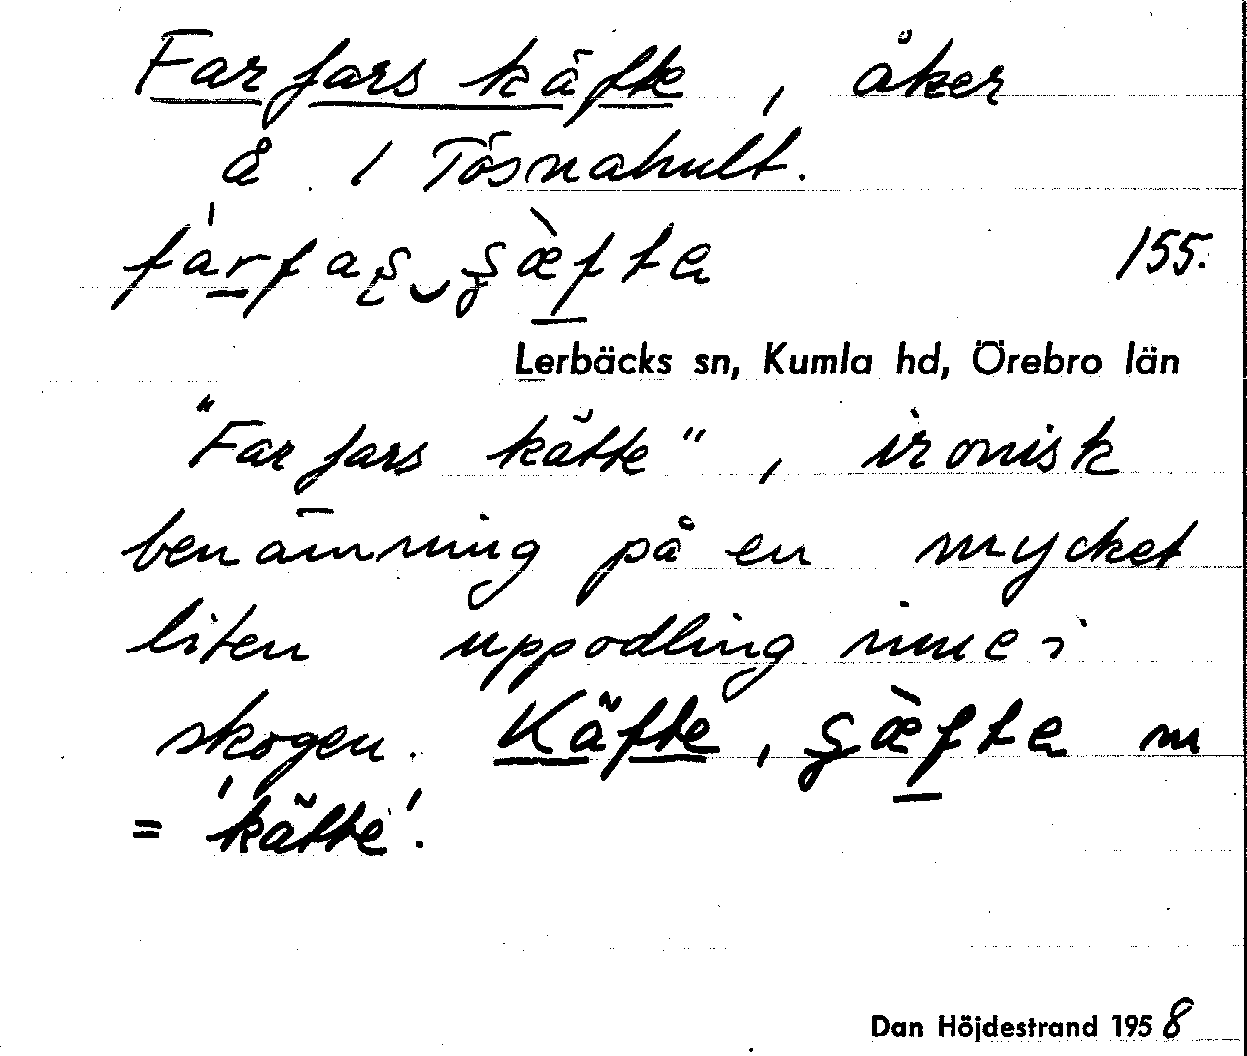 Farfars käfte, åker
å 1 Tösnahult.
155.
Lerbäcks sn, Kumla hd, Örebro län
"Farfars kätte", ironisk
benämning på en mycket
liten uppodling inne i
skogen. Käfte, m
= 'kätte'.
Dan Höjdestrand 1958